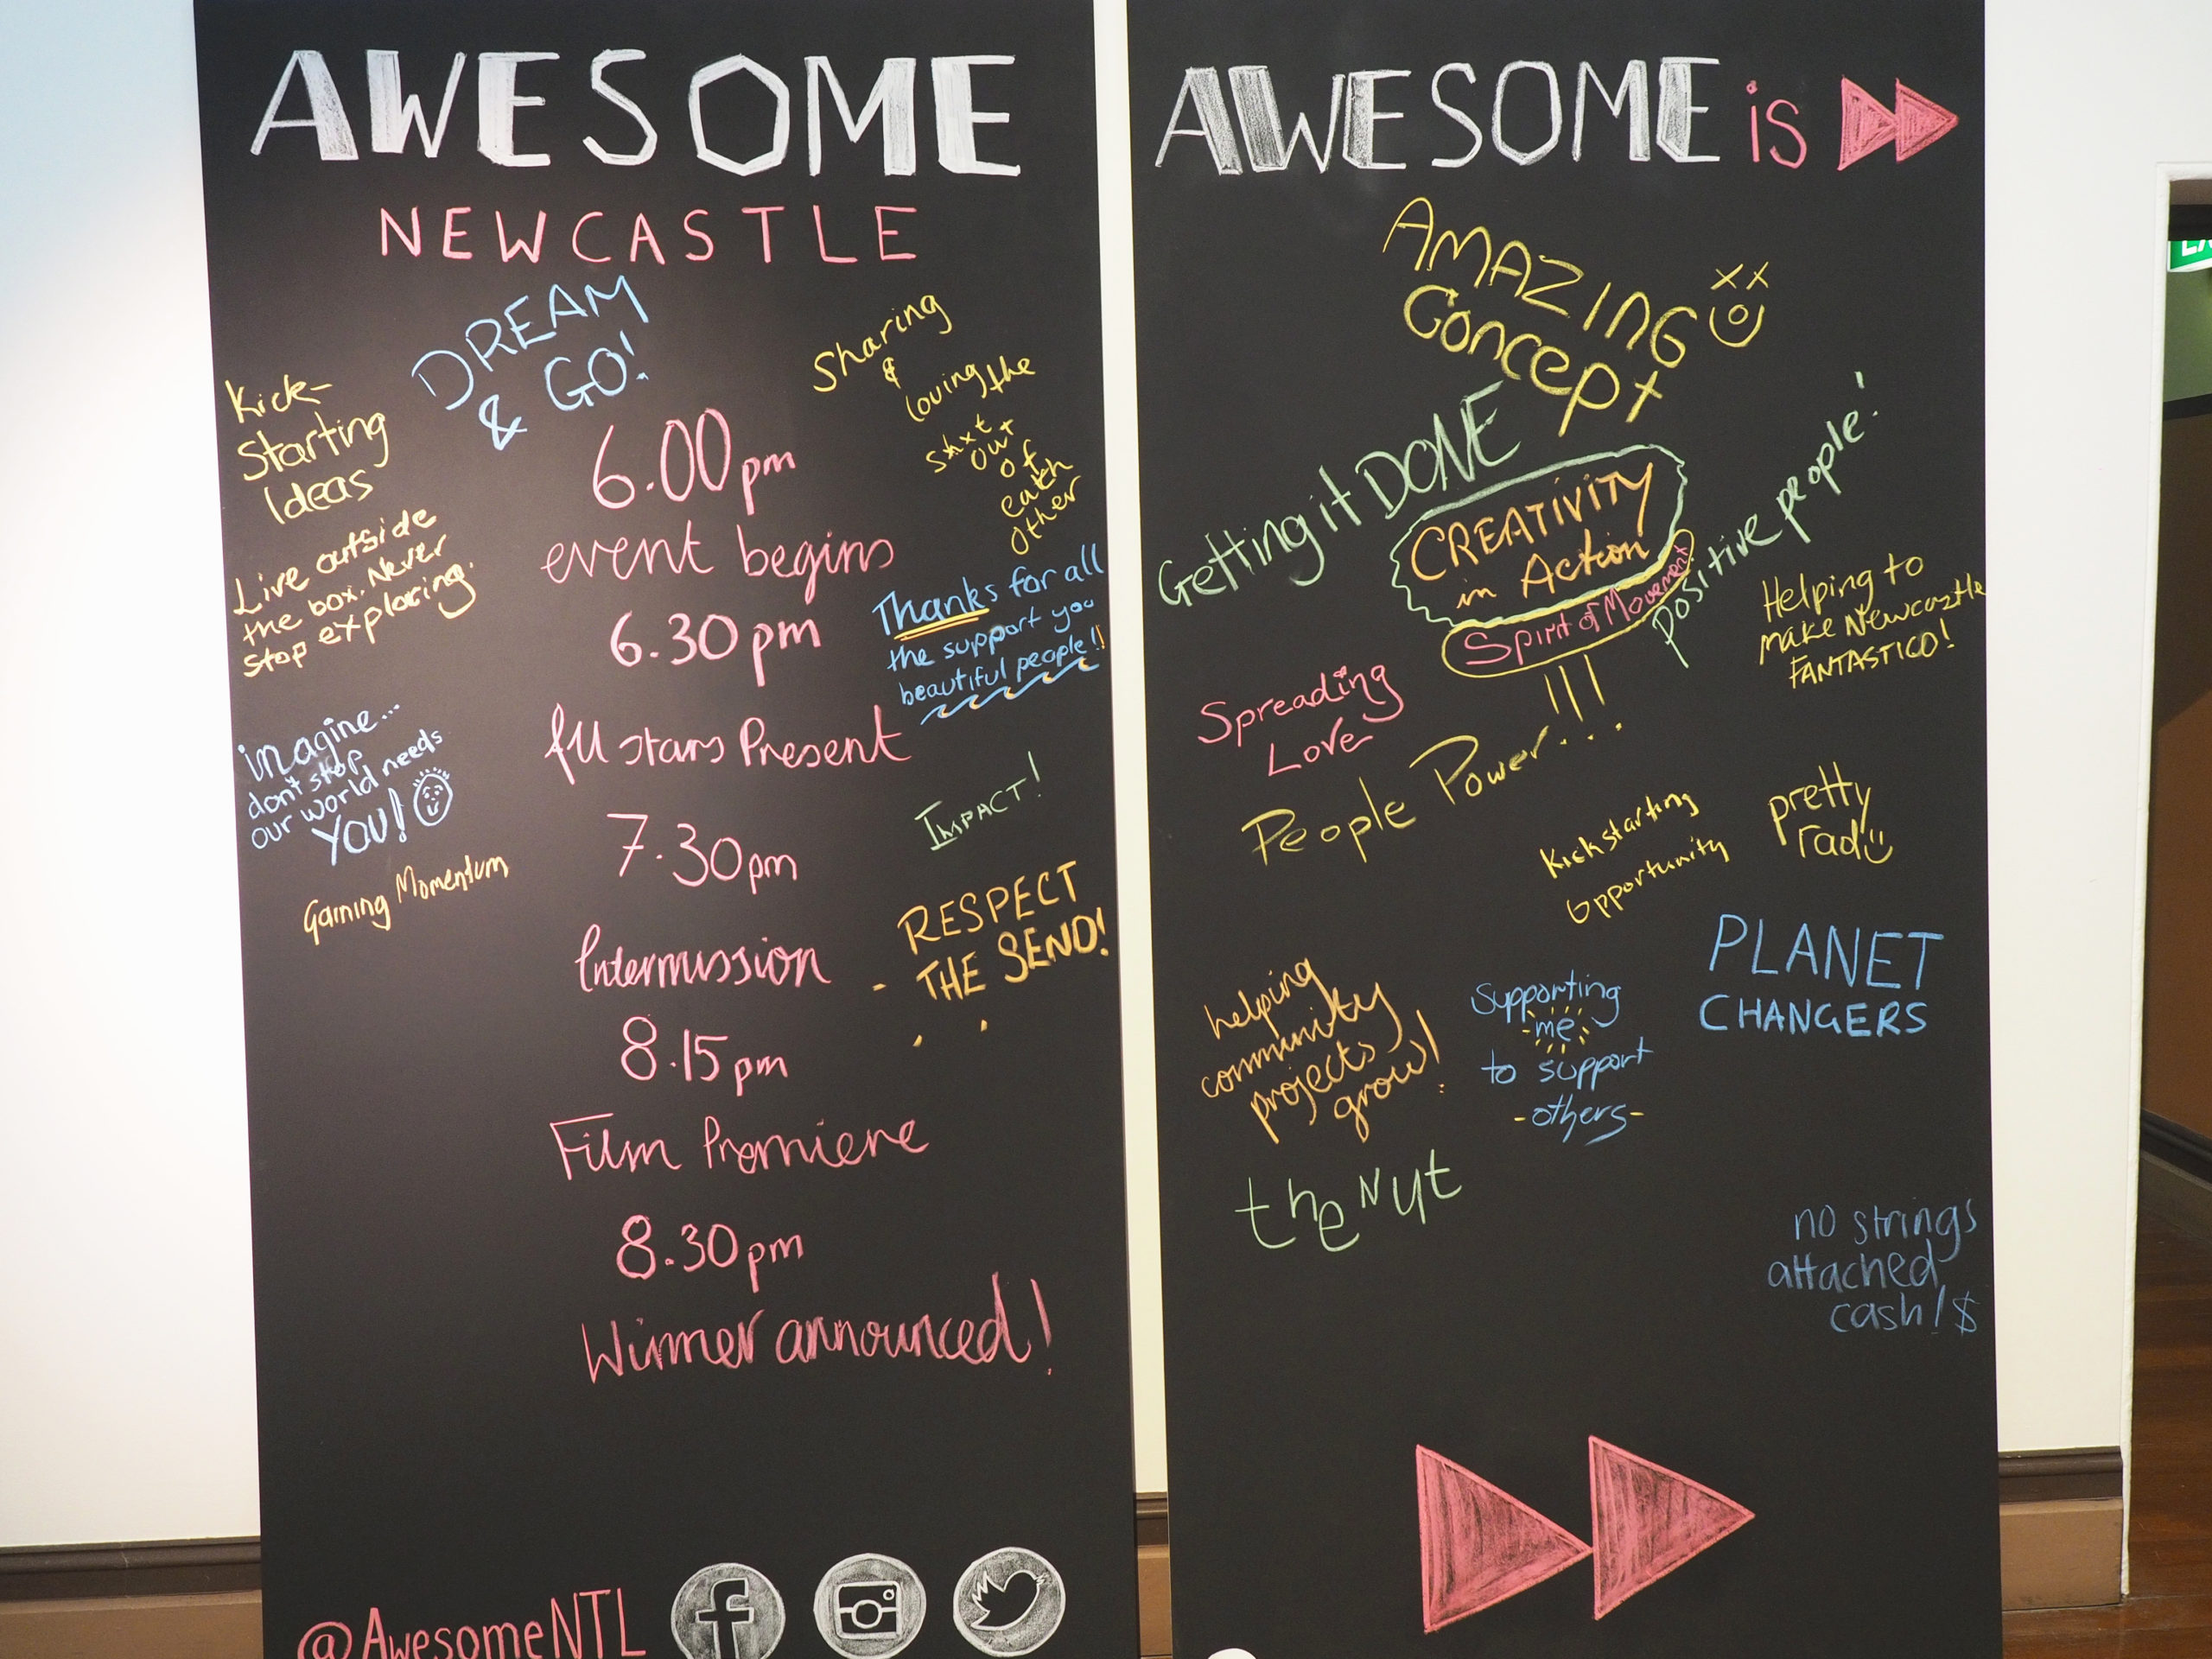 AWESOME
NEWCASTLE
DREAM
& GO!
Sharing
&
loving the
shxt
out
of
eatch
other
Kick-
Starting
Ideas
Live outside
the box. Never
stop exploring.
6.00pm
event begins
Thanks for all
the support you
beautiful people!!
6.30pm
Present
imagine...
don't stop
our world needs
YOU!
IMPACT!
7.30pm
Gaining Momentum
RESPECT
THE SEND!
Intermission
8.15pm
Film Premiere
8.30pm
Winner announced!
@AwesomeNTL
AWESOME is
AMAZING
Concept
Getting it DONE
CREATIVITY
in Action
Spirit of Movement
Positive people!
Helping to
make Newcastle
FANTASTICO!
Spreading
Love
People Power!!!
Kickstarting
Opportunity
pretty
rad
PLANET
CHANGERS
helping
community
projects
grow!
Supporting
me
to support
-others-
the Nut
no strings
attached
cash! $
EX